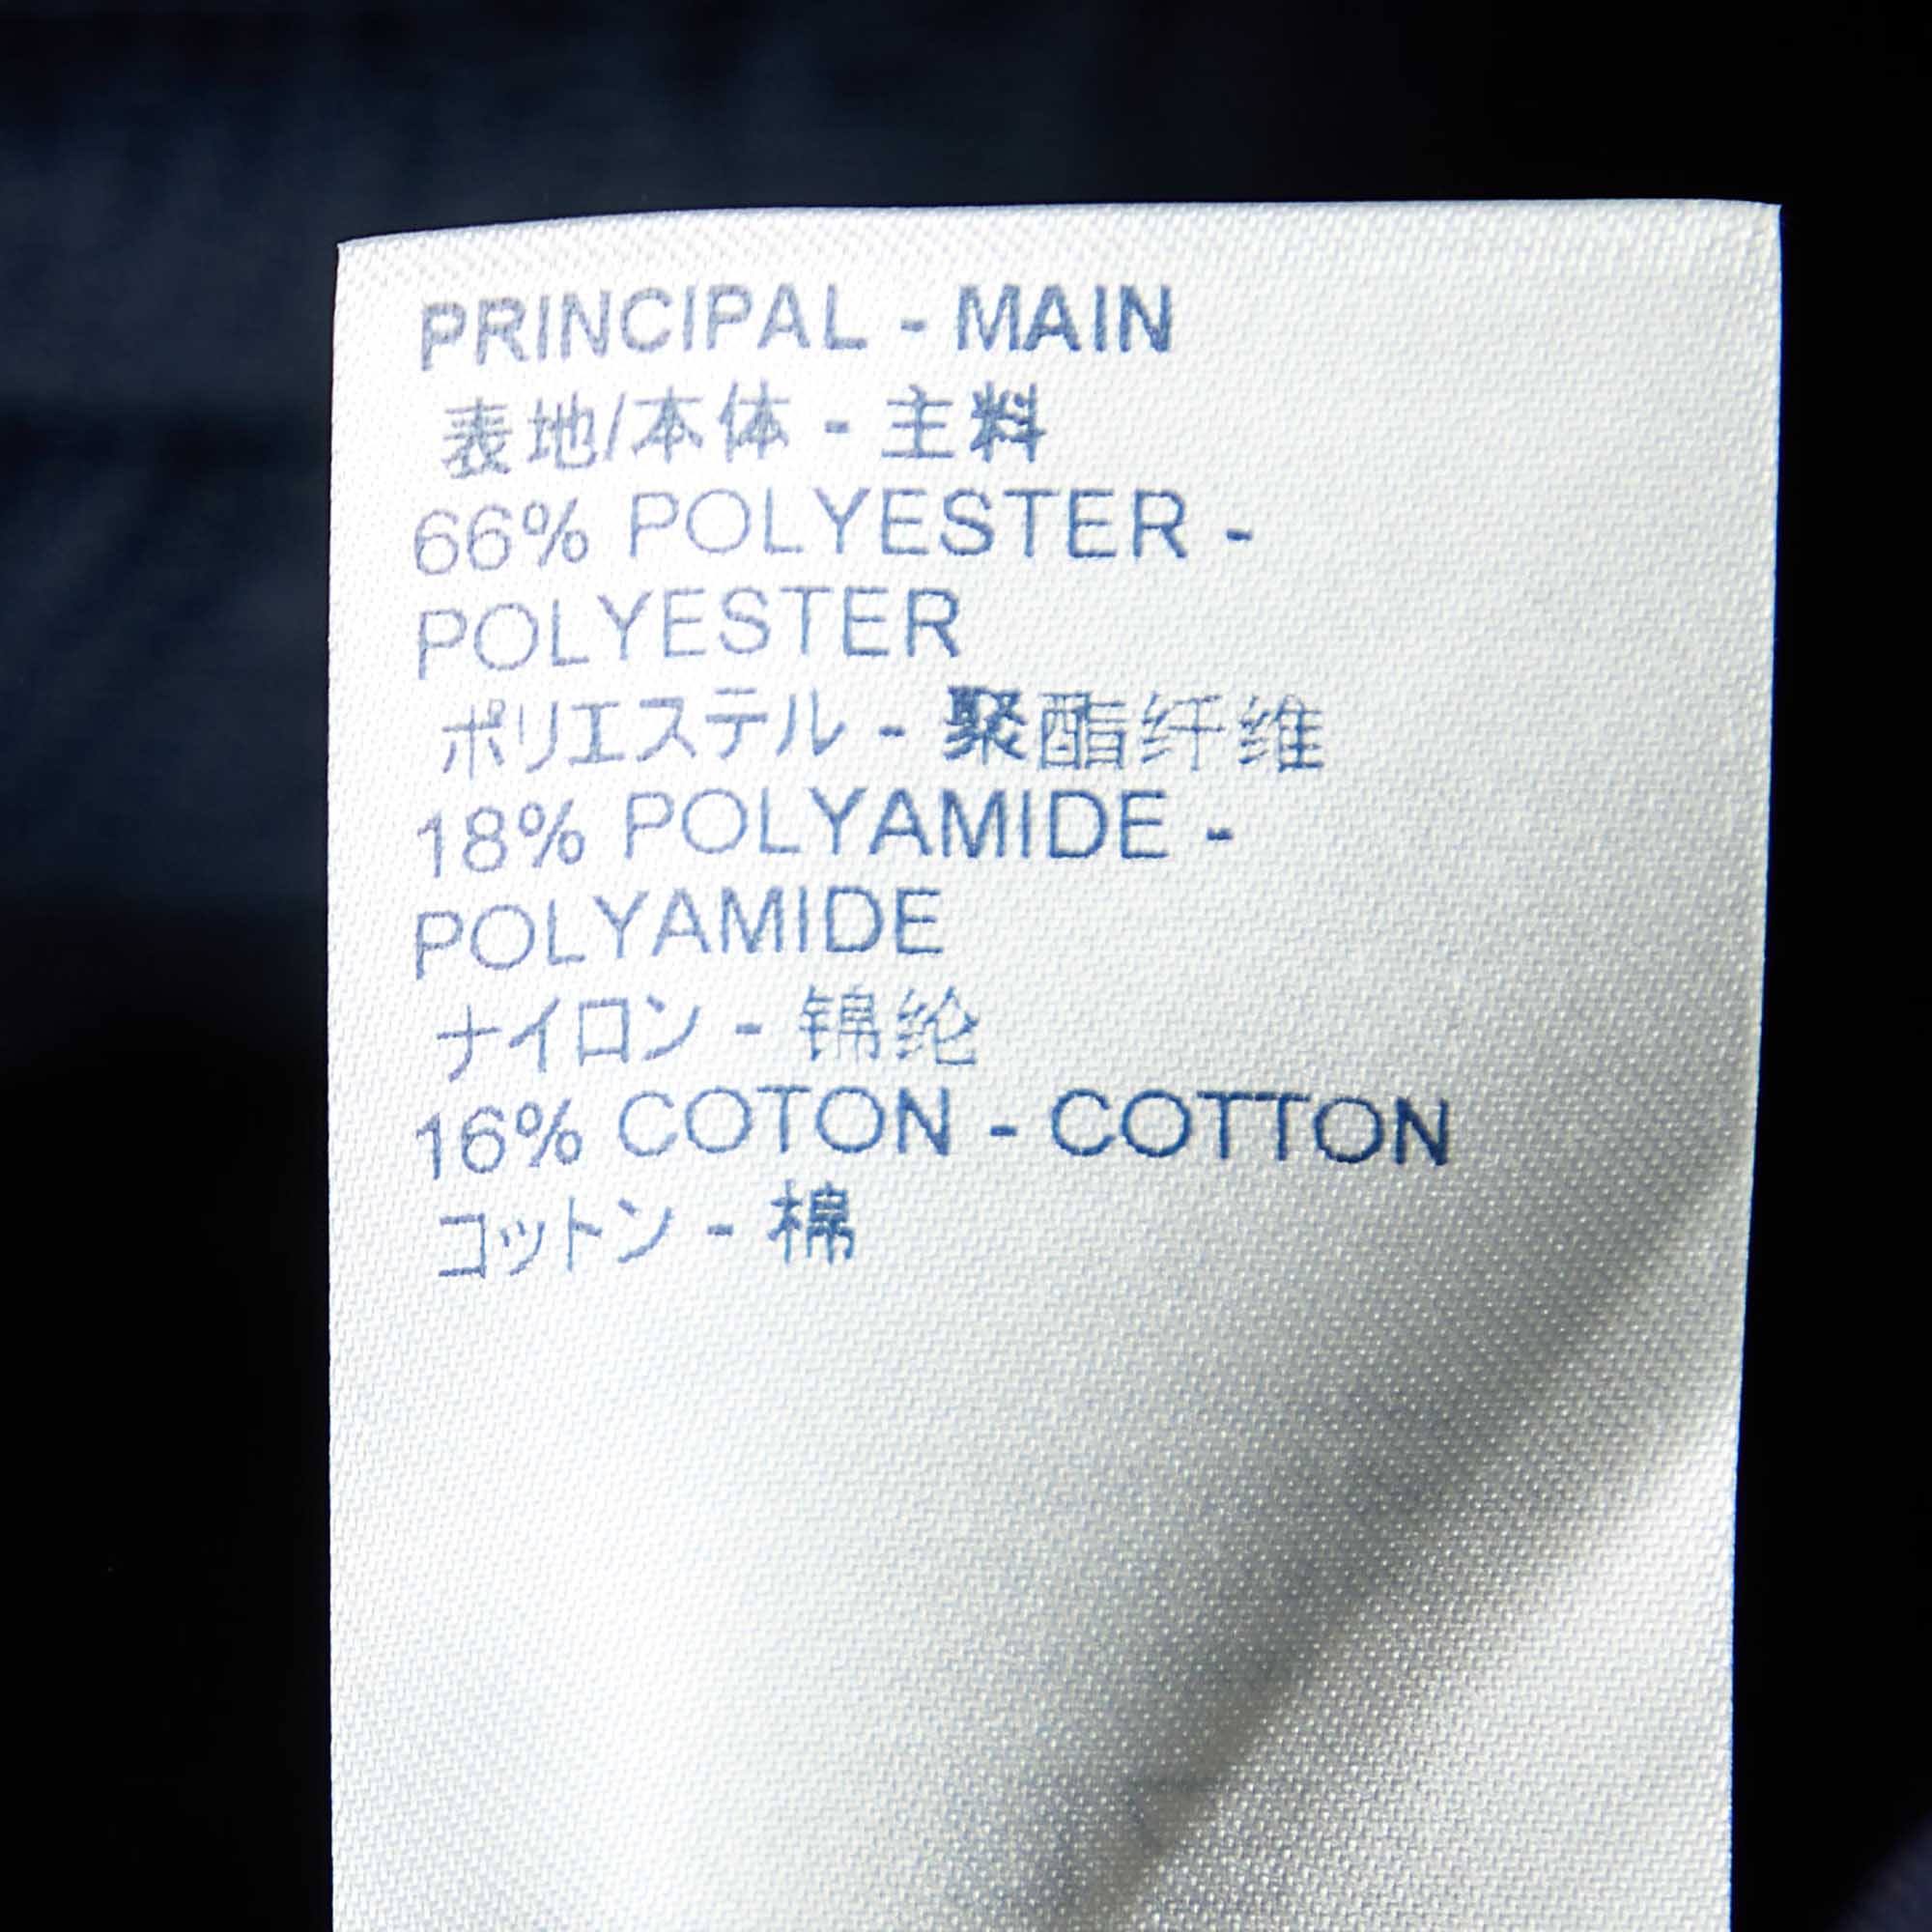 PRINCIPAL - MAIN
表地/本体 - 主料
66% POLYESTER -
POLYESTER
ポリエステル - 聚酯纤维
18% POLYAMIDE -
POLYAMIDE
ナイロン - 锦纶
16% COTON - COTTON
コットン - 棉